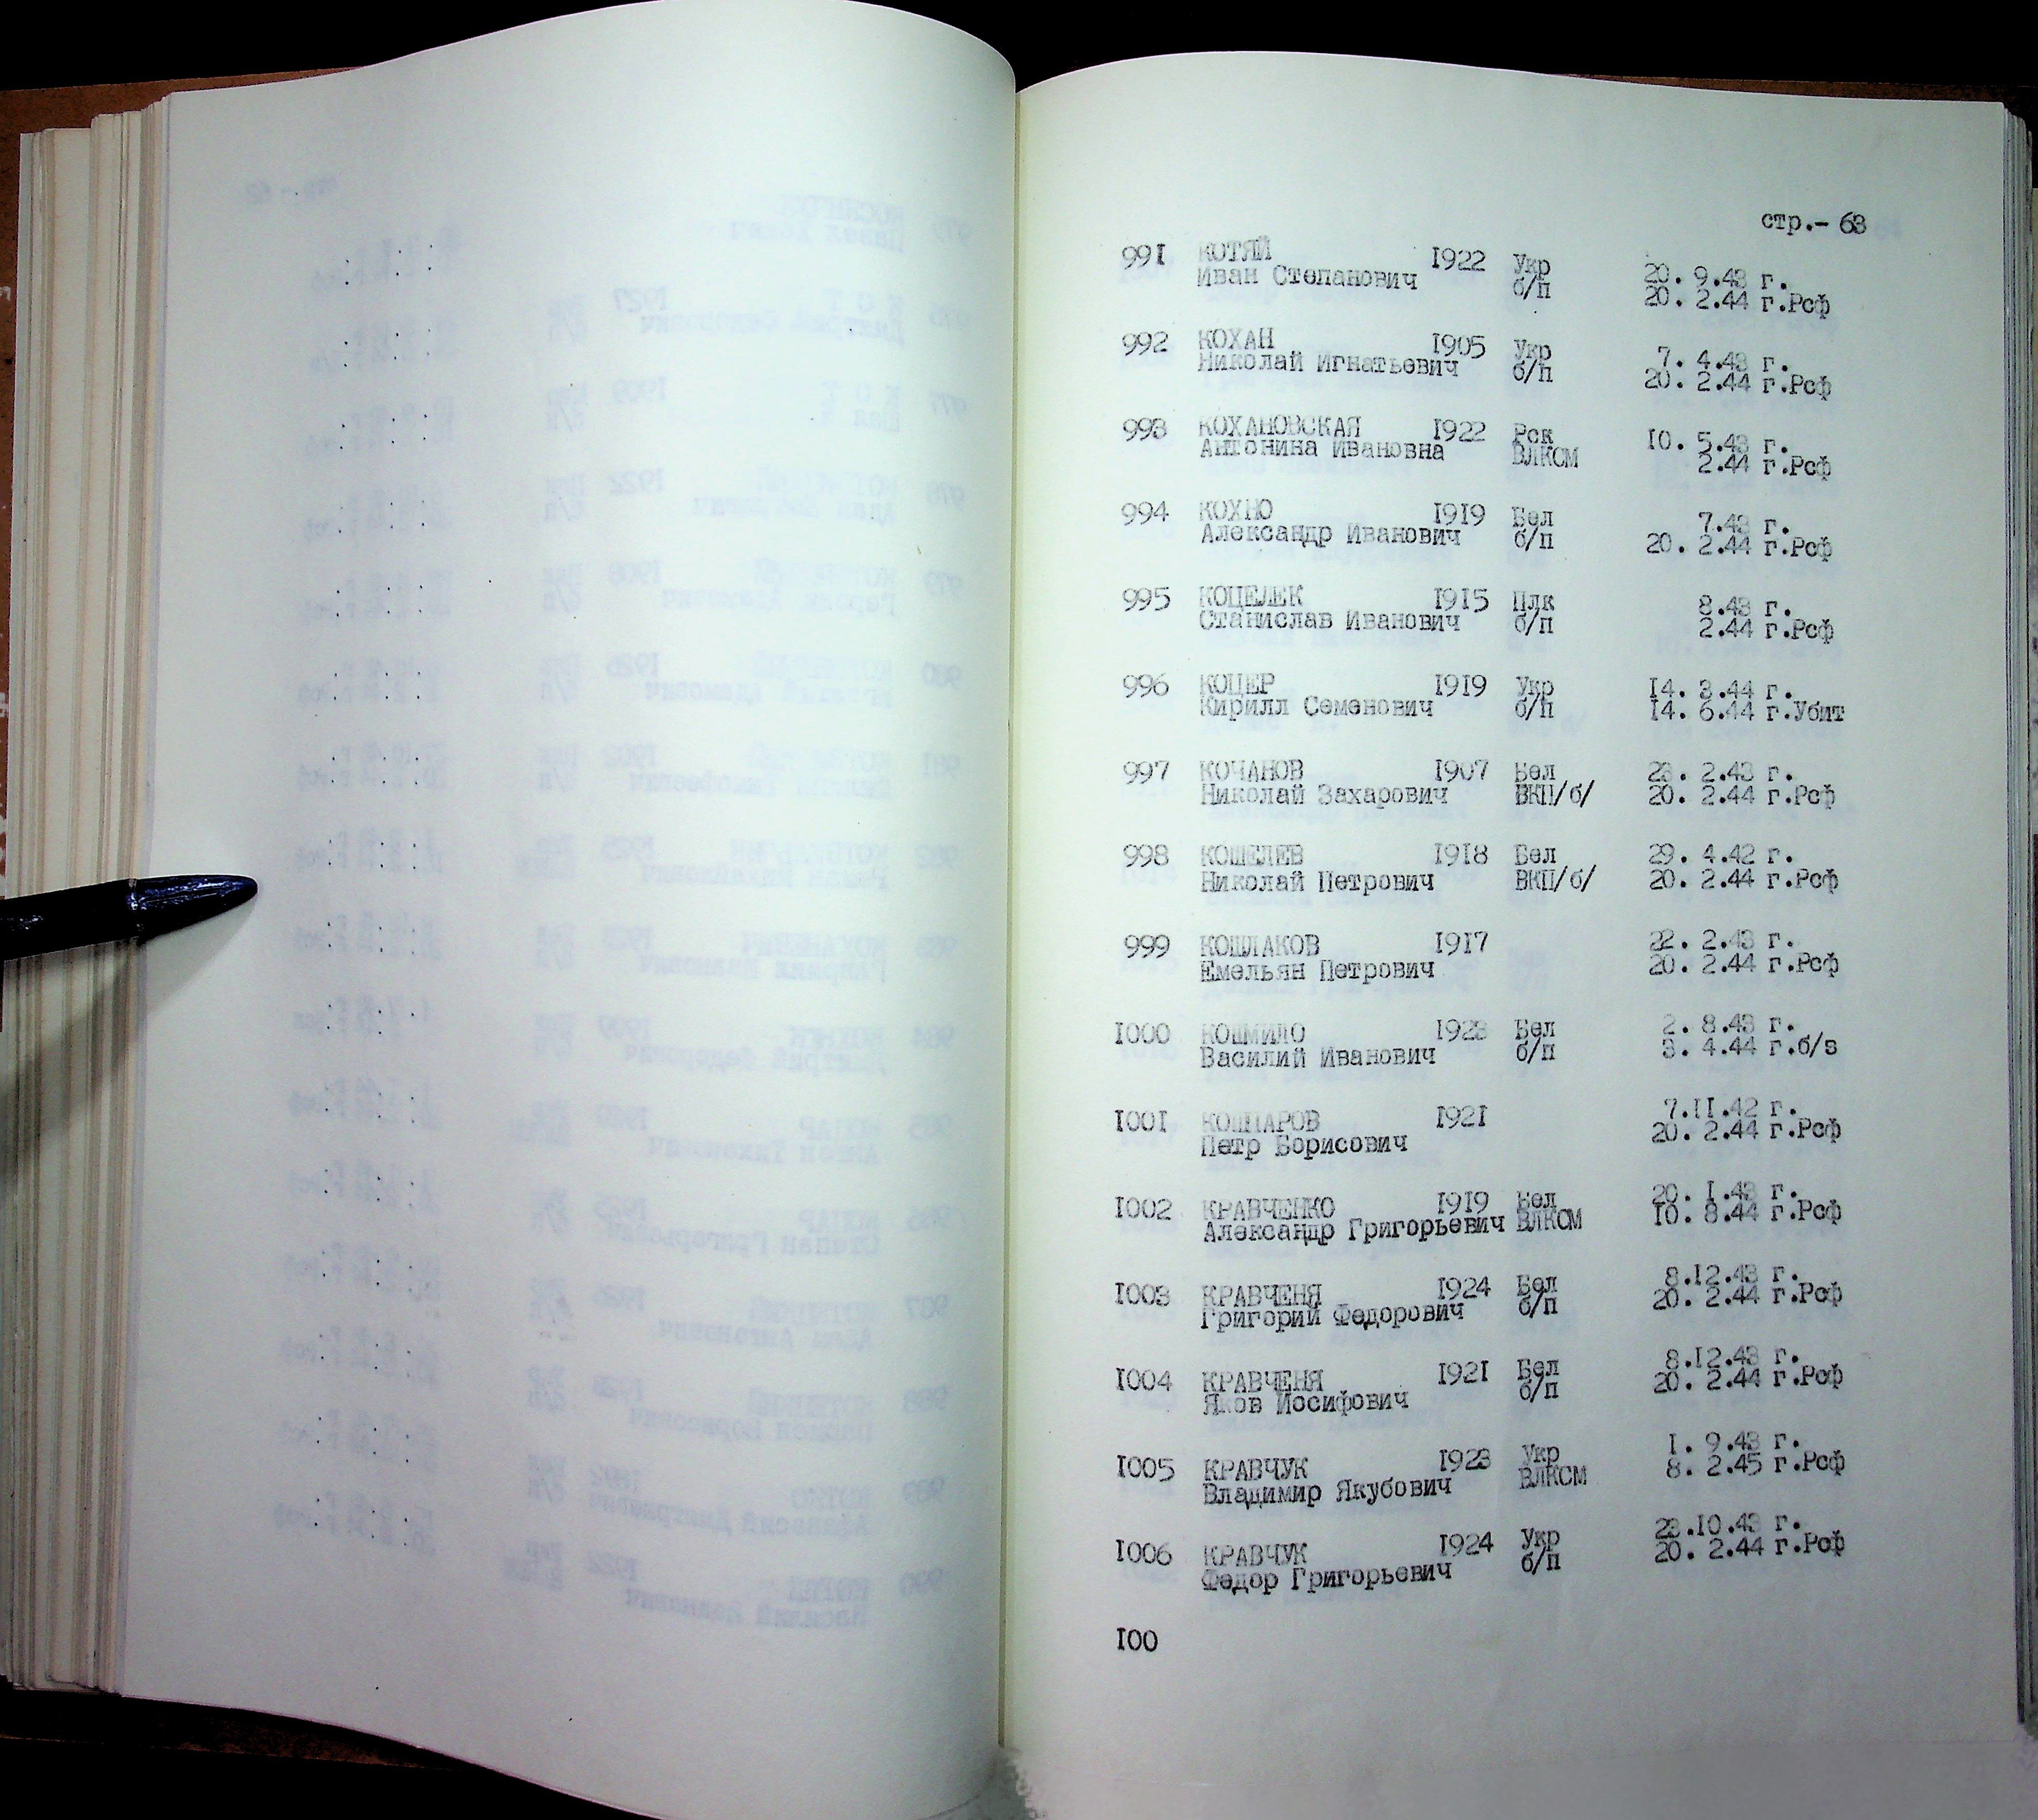 стр.- 63
991 КОТЯЙ 1922 Укр 20. 9.43 г.
Иван Степанович б/п 20. 2.44 г.Рсф
992 КОХАН 1905 Укр 7. 4.43 г.
Николай Игнатьевич б/п 20. 2.44 г.Рсф
993 КОХАНОВСКАЯ 1922 Рск 10. 5.43 г.
Антонина Ивановна ВЛКСМ 2.44 г.Рсф
994 КОХНО 1919 Бел 7.43 г.
Александр Иванович б/п 20. 2.44 г.Рсф
995 КОЦЕЛЕК 1915 Плк 8.43 г.
Станислав Иванович б/п 2.44 г.Рсф
996 КОЦЕР 1919 Укр 14. 3.44 г.
Кирилл Семенович б/п 14. 6.44 г.Убит
997 КОЧАНОВ 1907 Бел 23. 2.43 г.
Николай Захарович ВКП/б/ 20. 2.44 г.Рсф
998 КОШЕЛЕВ 1918 Бел 29. 4.42 г.
Николай Петрович ВКП/б/ 20. 2.44 г.Рсф
999 КОШЛАКОВ 1917 22. 2.43 г.
Емельян Петрович 20. 2.44 г.Рсф
1000 КОШМИЛО 1923 Бел 2. 8.43 г.
Василий Иванович б/п 3. 4.44 г.б/з
1001 КОШПАРОВ 1921 7.11.42 г.
Петр Борисович 20. 2.44 г.Рсф
1002 КРАВЧЕНКО 1919 Бел 20. 1.43 г.
Александр Григорьевич ВЛКСМ 10. 8.44 г.Рсф
1003 КРАВЧЕНЯ 1924 Бел 8.12.43 г.
Григорий Федорович б/п 20. 2.44 г.Рсф
1004 КРАВЧЕНЯ 1921 Бел 8.12.43 г.
Яков Иосифович б/п 20. 2.44 г.Рсф
1005 КРАВЧУК 1923 Укр 1. 9.43 г.
Владимир Якубович ВЛКСМ 8. 2.45 г.Рсф
1006 КРАВЧУК 1924 Укр 23.10.43 г.
Федор Григорьевич б/п 20. 2.44 г.Рсф
100